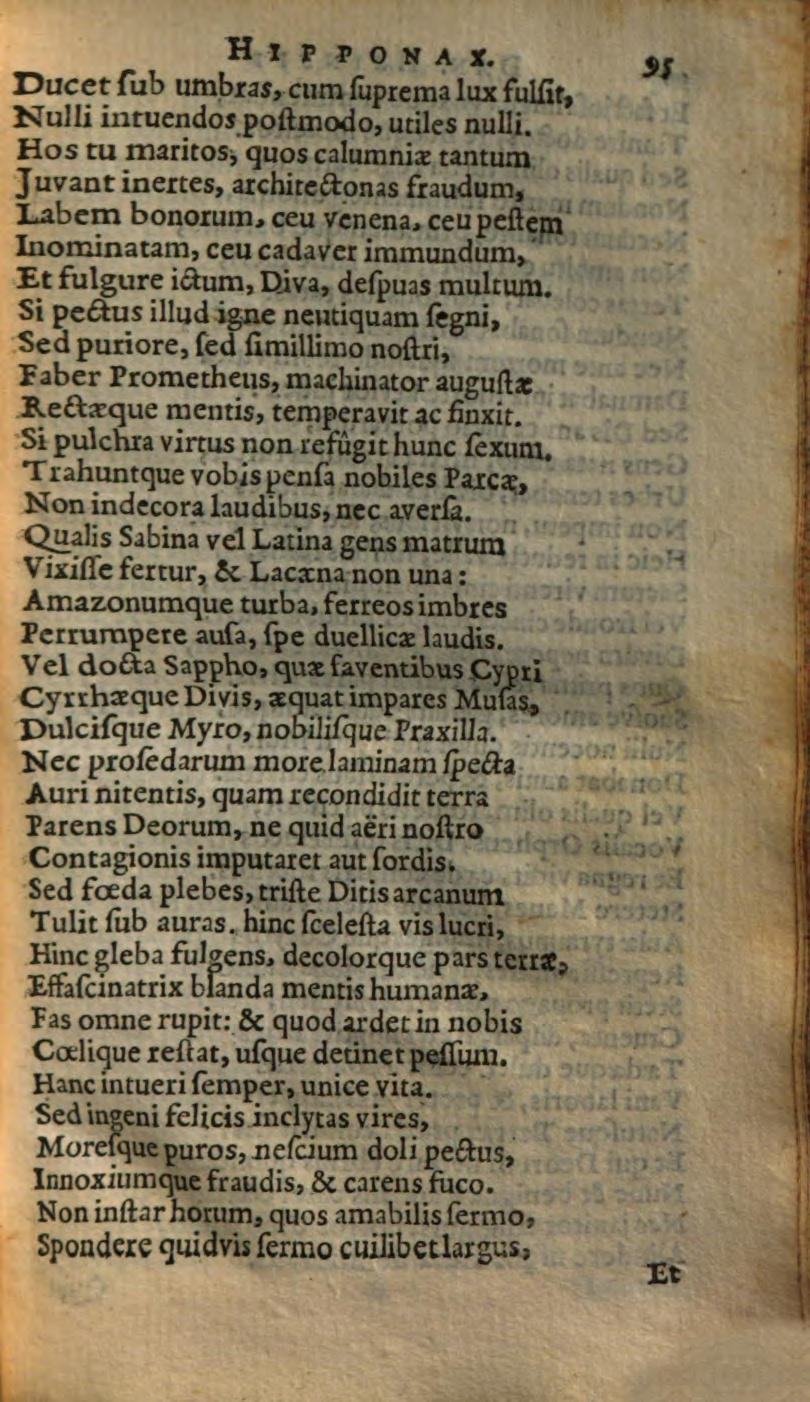 HIPPONAX. 95
Ducet ſub umbras, cum ſuprema lux fulſit,
Nulli intuendos poſtmodo, utiles nulli.
Hos tu maritos, quos calumniæ tantum
Juvant inertes, architectonas fraudum,
Labem bonorum, ceu venena, ceu peſtem
Inominatam, ceu cadaver immundum,
Et fulgure ictum, Diva, deſpuas multum.
Si pectus illud igne neutiquam ſegni,
Sed puriore, ſed ſimillimo noſtri,
Faber Prometheus, machinator auguſtæ
Rectæque mentis, temperavit ac finxit.
Si pulchra virtus non refûgit hunc ſexum,
Trahuntque vobis penſa nobiles Parcæ,
Non indecora laudibus, nec averſa.
Qualis Sabina vel Latina gens matrum
Vixiſſe fertur, & Lacæna non una:
Amazonumque turba, ferreos imbres
Perrumpere auſa, ſpe duellicæ laudis.
Vel docta Sappho, quæ faventibus Cypri
Cyrrhæque Divis, æquat impares Muſas,
Dulciſque Myro, nobiliſque Praxilla.
Nec proſedarum more laminam ſpecta
Auri nitentis, quam recondidit terra
Parens Deorum, ne quid aëri noſtro
Contagionis imputaret aut ſordis.
Sed fœda plebes, triſte Ditis arcanum
Tulit ſub auras. hinc ſceleſta vis lucri,
Hinc gleba fulgens, decolorque pars terræ,
Effaſcinatrix blanda mentis humanæ,
Fas omne rupit: & quod ardet in nobis
Cœlique reſtat, uſque detinet peſſum.
Hanc intueri ſemper, unice vita.
Sed ingeni felicis inclytas vires,
Moreſque puros, neſcium doli pectus,
Innoxiumque fraudis, & carens fuco.
Non inſtar horum, quos amabilis ſermo,
Spondere quidvis ſermo cuilibet largus,
Et